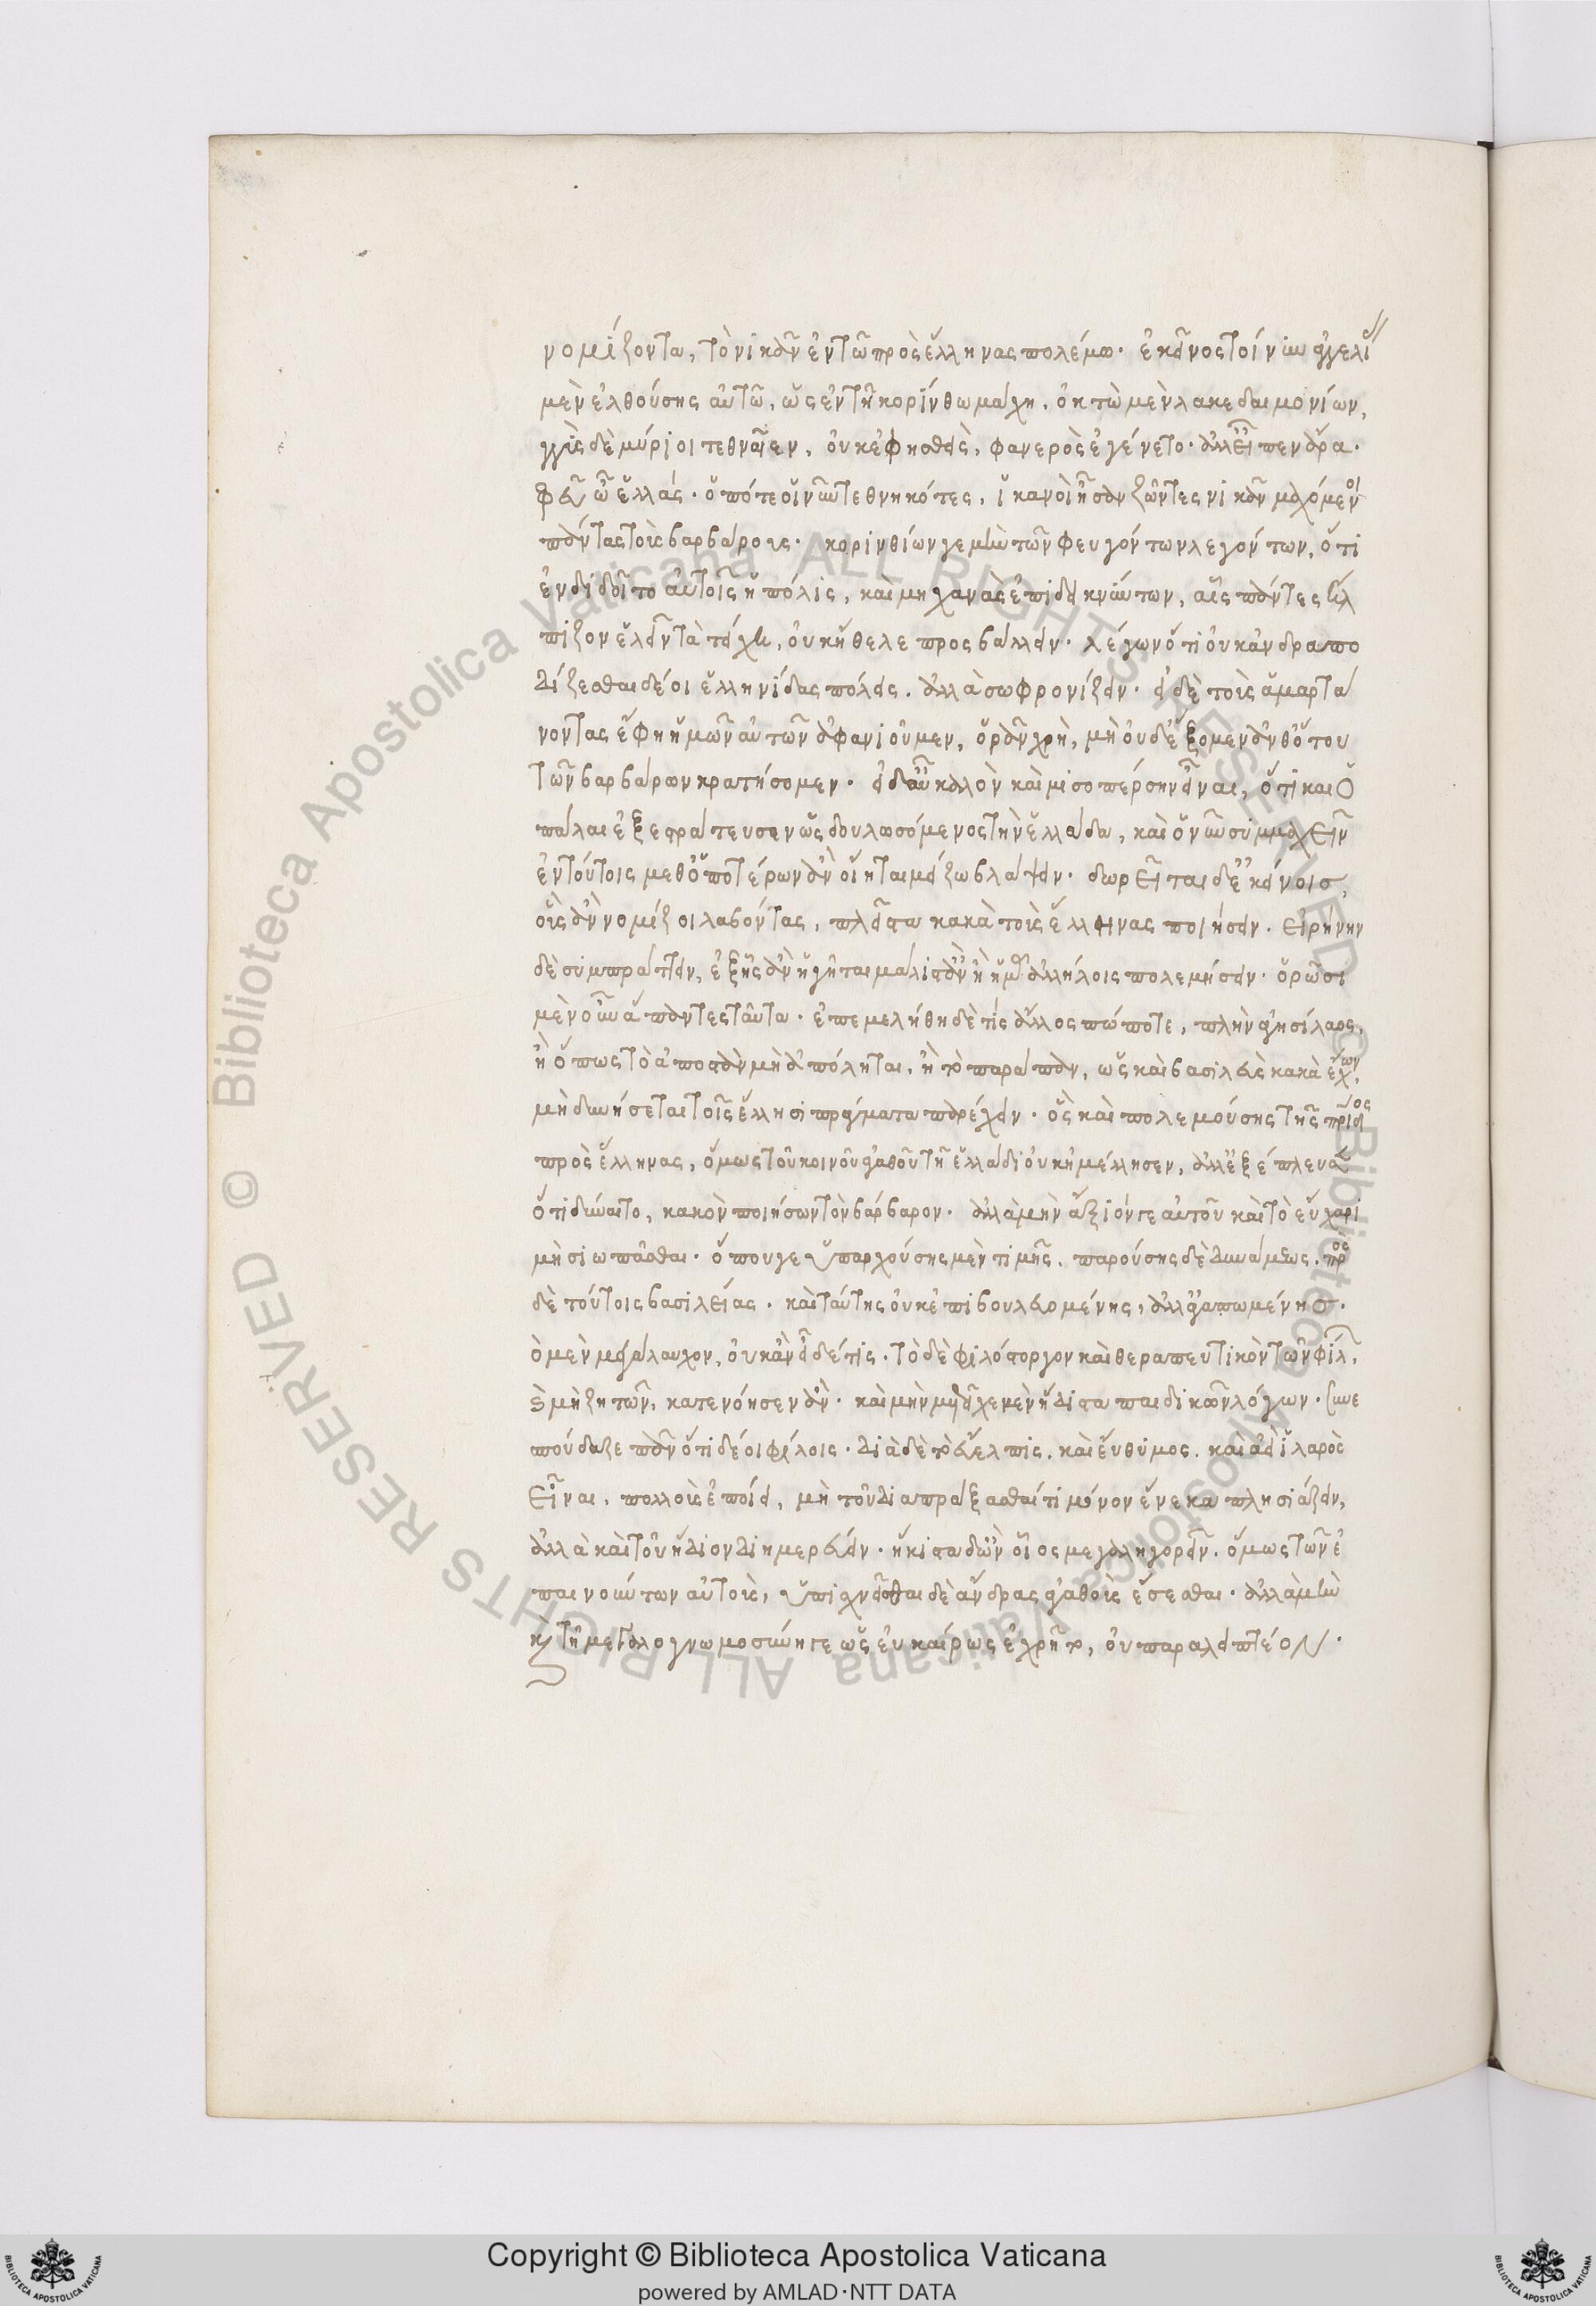 νομίζοντα, τὸ νικᾶν ἐν τῶ πρὸς ἕλληνας πολέμω· ἐκεῖνος τοίνυν ἀγγελί
μὲν ἐλθούσης αὐτῶ, ὡς ἐν τῆ κορίνθω μάχη, ὀκτὼ μὲν λακεδαιμονίων,
ἐγγὺς δὲ μύριοι τεθναῖεν, οὐκ ἐφησθεὶς, φανερὸς ἐγένετο· ἀλλ' εἶπεν ἄρα·
φεῦ ὦ ἑλλάς· ὁπότε οἱ νῦν τεθνηκότες, ἱκανοὶ ἦσαν ζῶντες νικᾶν μαχόμενοι
πάντας τοὺς βαρβάρους· κορινθίων γε μὴν τῶν φευγόντων λεγόντων, ὅτι
ἐνδιδοῖτο αὐτοῖς ἡ πόλις, καὶ μηχανὰς ἐπιδεικνύντων, αἷς πάντες ἤλ
πιζον ἑλεῖν τὰ τείχη, οὐκ ἤθελε προσβάλλειν· λέγων ὅτι οὐκ ἀνδραπο
δίζεσθαι δέοι ἑλληνίδας πόλεις, ἀλλὰ σωφρονίζειν· εἰ δὲ τοὺς ἁμαρτά
νοντας ἔφη ἡμῶν αὐτῶν ἀφανιοῦμεν, ὁρᾶν χρὴ, μὴ οὐδ' ἕξομεν μεθ' ὅτου
τῶν βαρβάρων κρατήσομεν· εἰ δ' αὖ καλὸν καὶ μισοπέρσην εἶναι, ὅτι καὶ ὁ
πάλαι ἐξεστράτευσεν ὡς δουλωσόμενος τὴν ἑλλάδα, καὶ ὁ νῦν συμμαχεῖ
ἐν τούτοις μεθ' ὁποτέρων ἂν οἴηται μείζω βλάψειν· δωρεῖται δ' ἐκείνοις,
οὓς ἂν νομίζοι λαβόντας, πλεῖστα κακὰ τοὺς ἕλληνας ποιήσειν· εἰρήνην
δὲ συμπράττειν, ἐξ ἧς ἂν ἡγῆται μάλιστ' ἂν ἢ ἡμᾶς ἀλλήλοις πολεμήσειν· ὁρῶσι
μὲν οὖν ἅπαντες ταῦτα· ἐπεμελήθη δὲ τίς ἄλλος πώποτε, πλὴν ἀγησίλαος,
ἢ ὅπως τὸ ἀποστὰν μὴ ἀπόληται, ἢ τὸ παράπαν, ὡς καὶ βασιλεὺς κακὰ ἔχων,
μὴ δυνήσεται τοῖς ἕλλησι πράγματα παρέχειν· ὃς καὶ πολεμούσης τῆς πατρίδος
πρὸς ἕλληνας, ὅμως τοῦ κοινοῦ ἀγαθοῦ τῆ ἑλλάδι οὐκ ἠμέλησεν, ἀλλ' ἐξέπλευσεν
ὅτι δύναιτο, κακὸν ποιήσων τὸν βάρβαρον· ἀλλὰ μὴν ἄξιόν γε αὐτοῦ καὶ τὸ εὔχαρι
μὴ σιωπᾶσθαι· ὅπου γε ὑπαρχούσης μὲν τιμῆς, παρούσης δὲ δυνάμεως, πρὸς
δὲ τούτοις βασιλείας· καὶ ταύτης οὐκ ἐπιβουλευομένης, ἀλλ' ἀγαπωμένης·
ὸ μὲν μεγάλαυχον, οὐκ ἂν εἶδέ τις· τὸ δὲ φιλόστοργον καὶ θεραπευτικὸν τῶν φίλ,
ϗ μὴ ζητῶν, κατενόησεν ἄν· καὶ μὴν μετεῖχε μὲν ἥδιστα παιδικῶν λόγων· συνε
σπούδαζε πᾶν ὅτι δέοι φίλοις· διὰ δὲ τὸ εὔελπις, καὶ εὔθυμος, καὶ ἀεὶ ἱλαρὸς
εἶναι, πολλοὺς ἐποίει, μὴ τοῦ διαπράξασθαί τι μόνον ἕνεκα πλησιάζειν,
ἀλλὰ καὶ τοῦ ἥδιον διημερεύειν· ἥκιστα δ' ὢν οἷος μεγαληγορεῖν, ὅμως τῶν ἐ
παινούντων αὑτοὺς, ὑπισχνεῖσθαι δὲ ἄνδρας ἀγαθοὺς ἔσεσθαι· ἀλλὰ μὴν
καὶ τῆ μεγαλογνωμοσύνη γε ὡς εὐκαίρως ἐχρῆτο, οὐ παραλειπτέον·